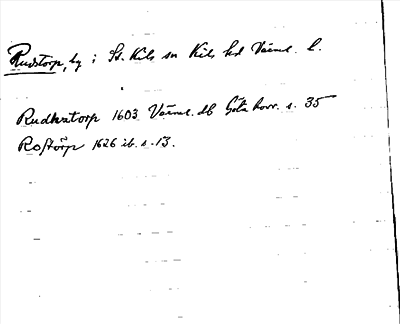 Rudstorp, by i St. Kils sn Kils hd Värml. l.
Rudhatorp 1603 Värml. db Göta hovr. s. 35
Rostörp 1626 ib. s. 13.